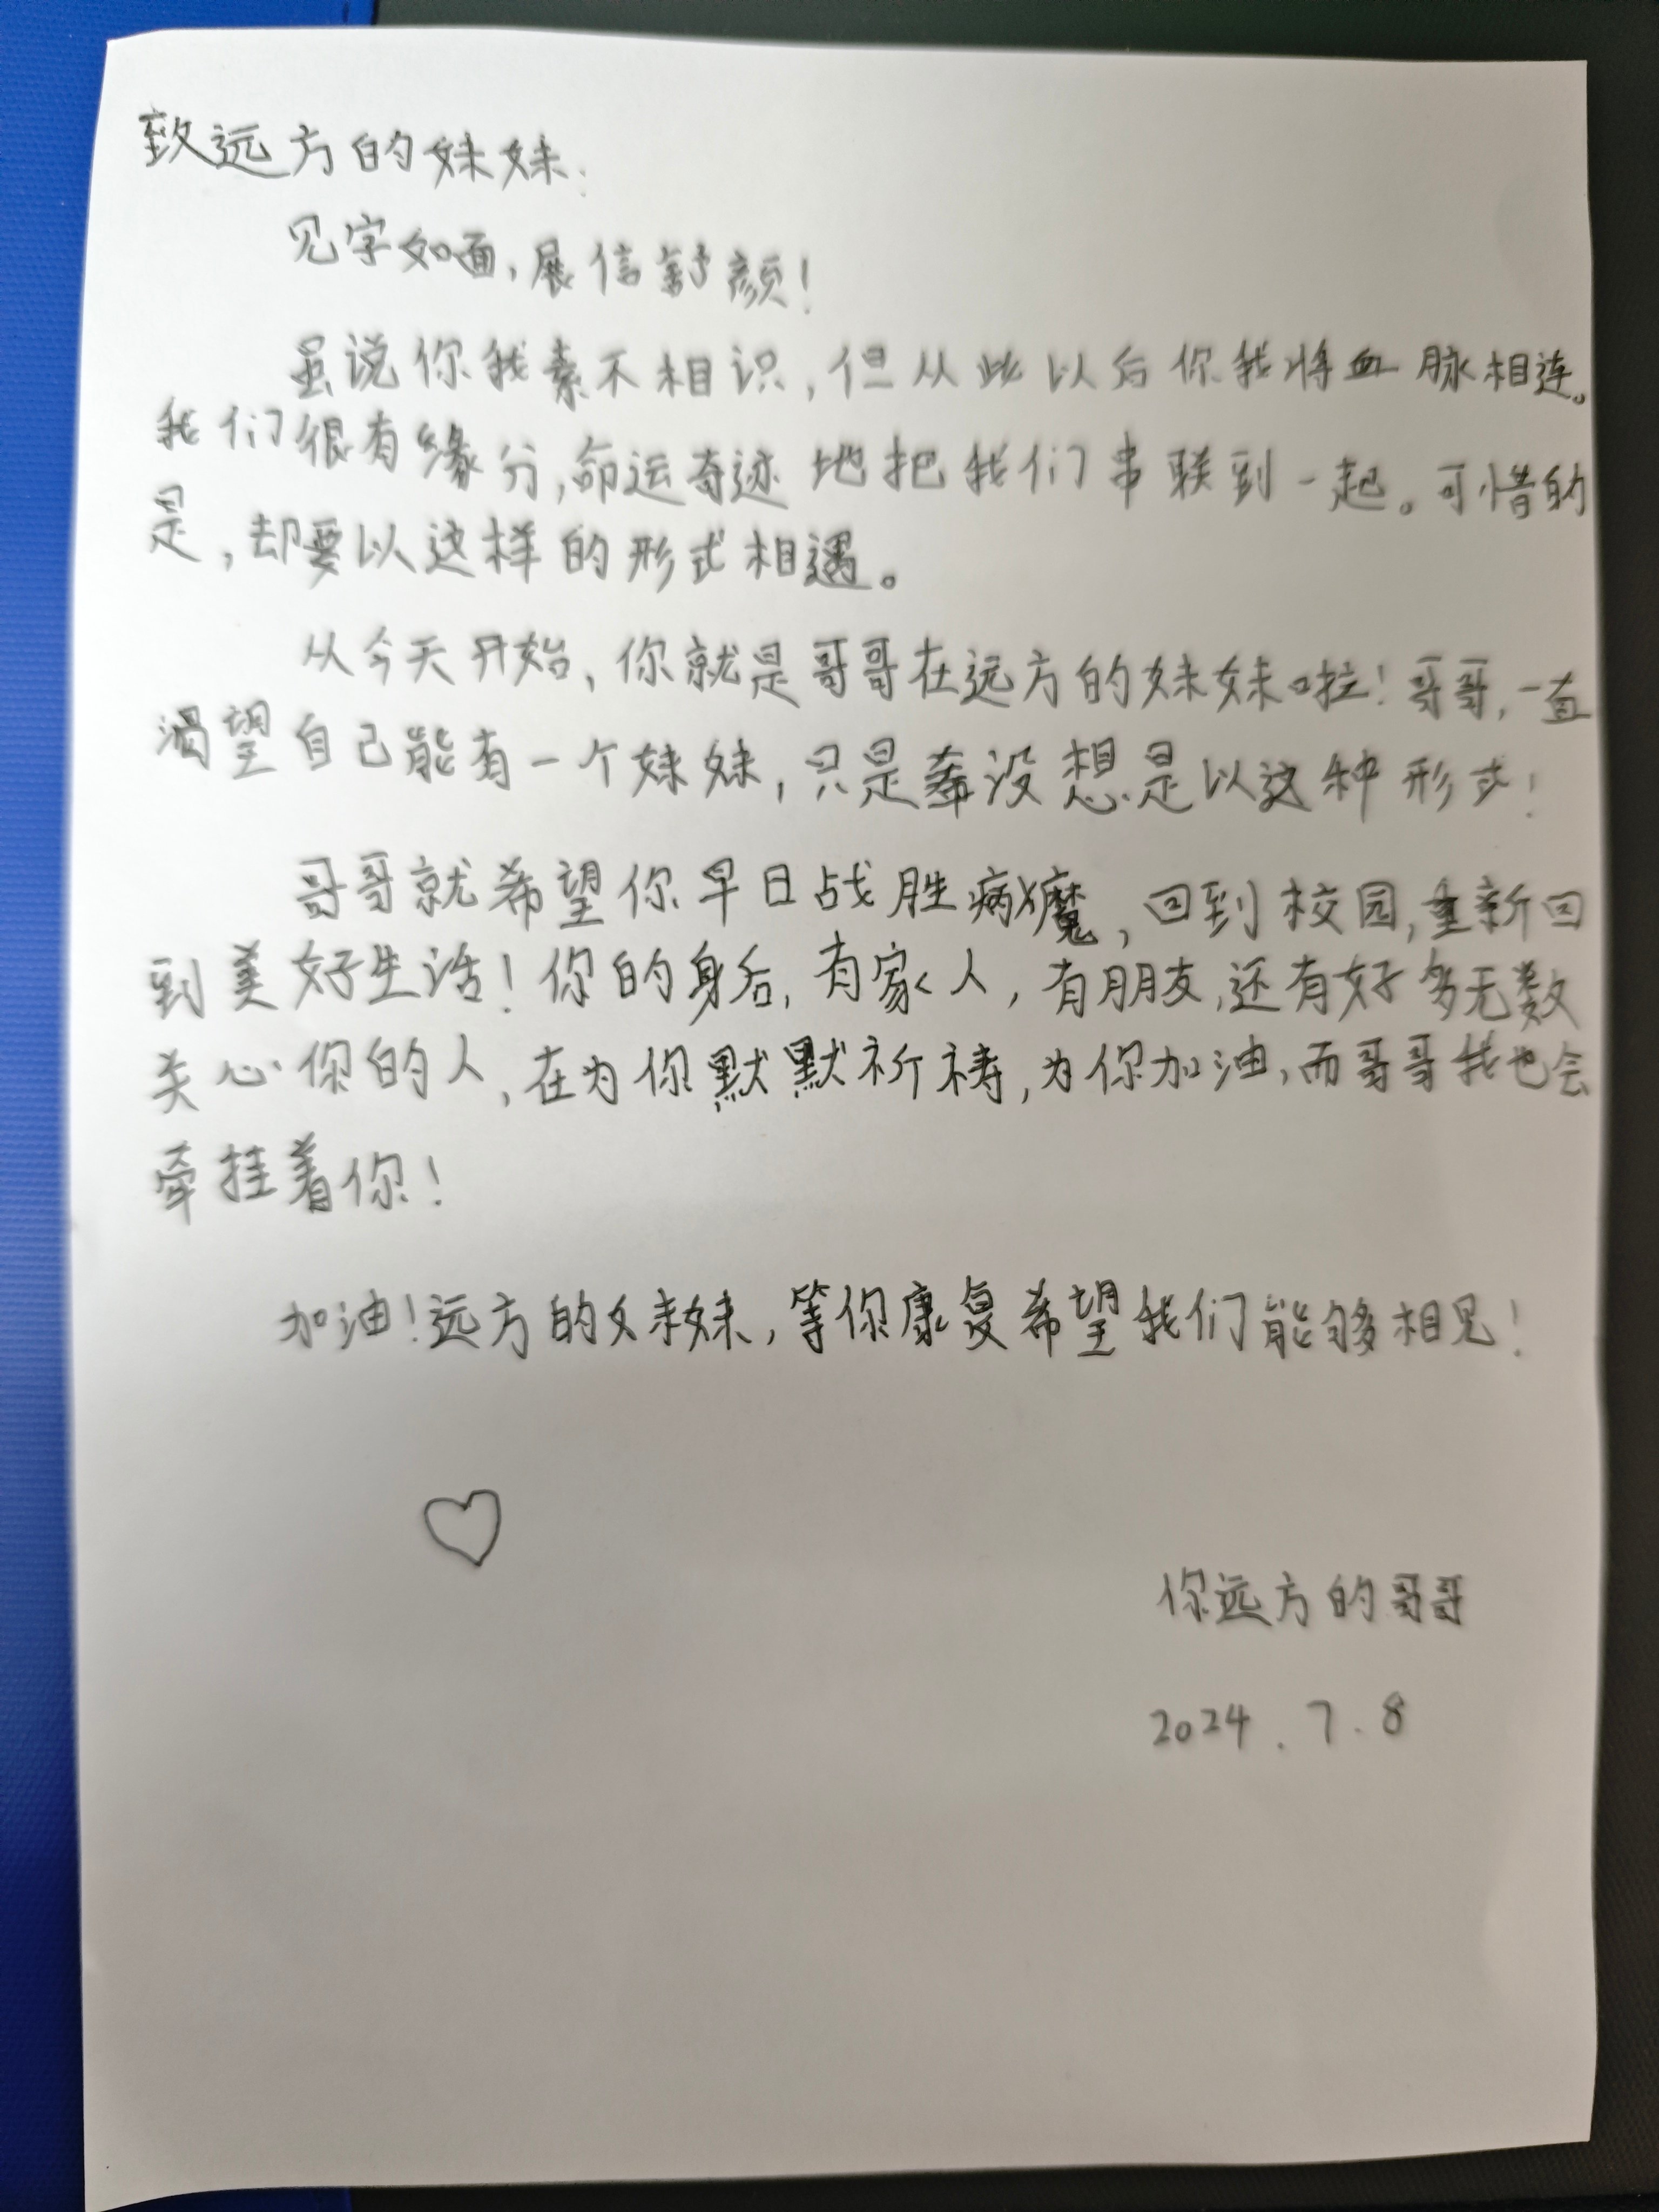 致远方的妹妹:
见字如面,展信舒颜!
虽说你我素不相识,但从此以后你我将血脉相连。
我们很有缘分,命运奇迹地把我们串联到一起。可惜的
是,却要以这样的形式相遇。
从今天开始,你就是哥哥在远方的妹妹啦!哥哥,一直
渴望自己能有一个妹妹,只是没想是以这种形式!
哥哥就希望你早日战胜病魔,回到校园,重新回
到美好生活!你的身后,有家人,有朋友,还有好多无数
关心你的人,在为你默默祈祷,为你加油,而哥哥我也会
牵挂着你!
加油!远方的妹妹,等你康复希望我们能够相见!
你远方的哥哥
2024.7.8